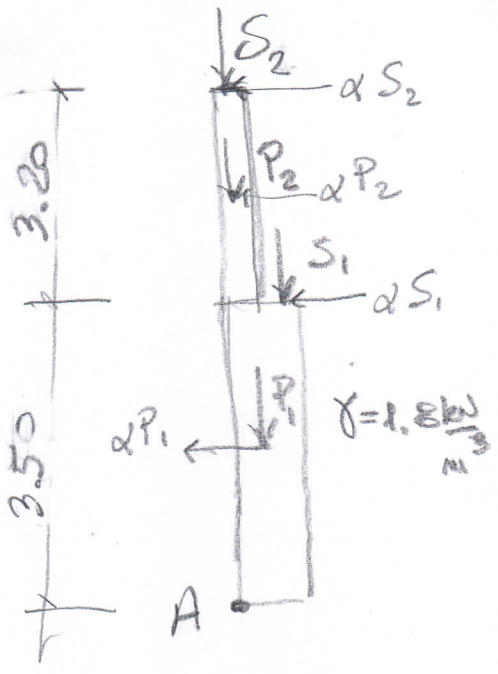 S₂
αS₂
3.20
P₂
αP₂
S₁
αS₁
P₁
αP₁
γ=1.8 kN/m³
3.50
A